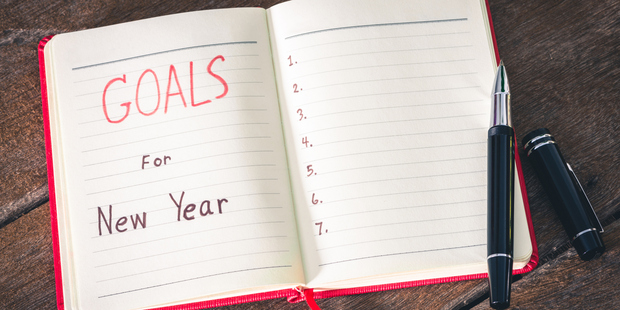 GOALS
For
New Year
1.
2.
3.
4.
5.
6.
7.